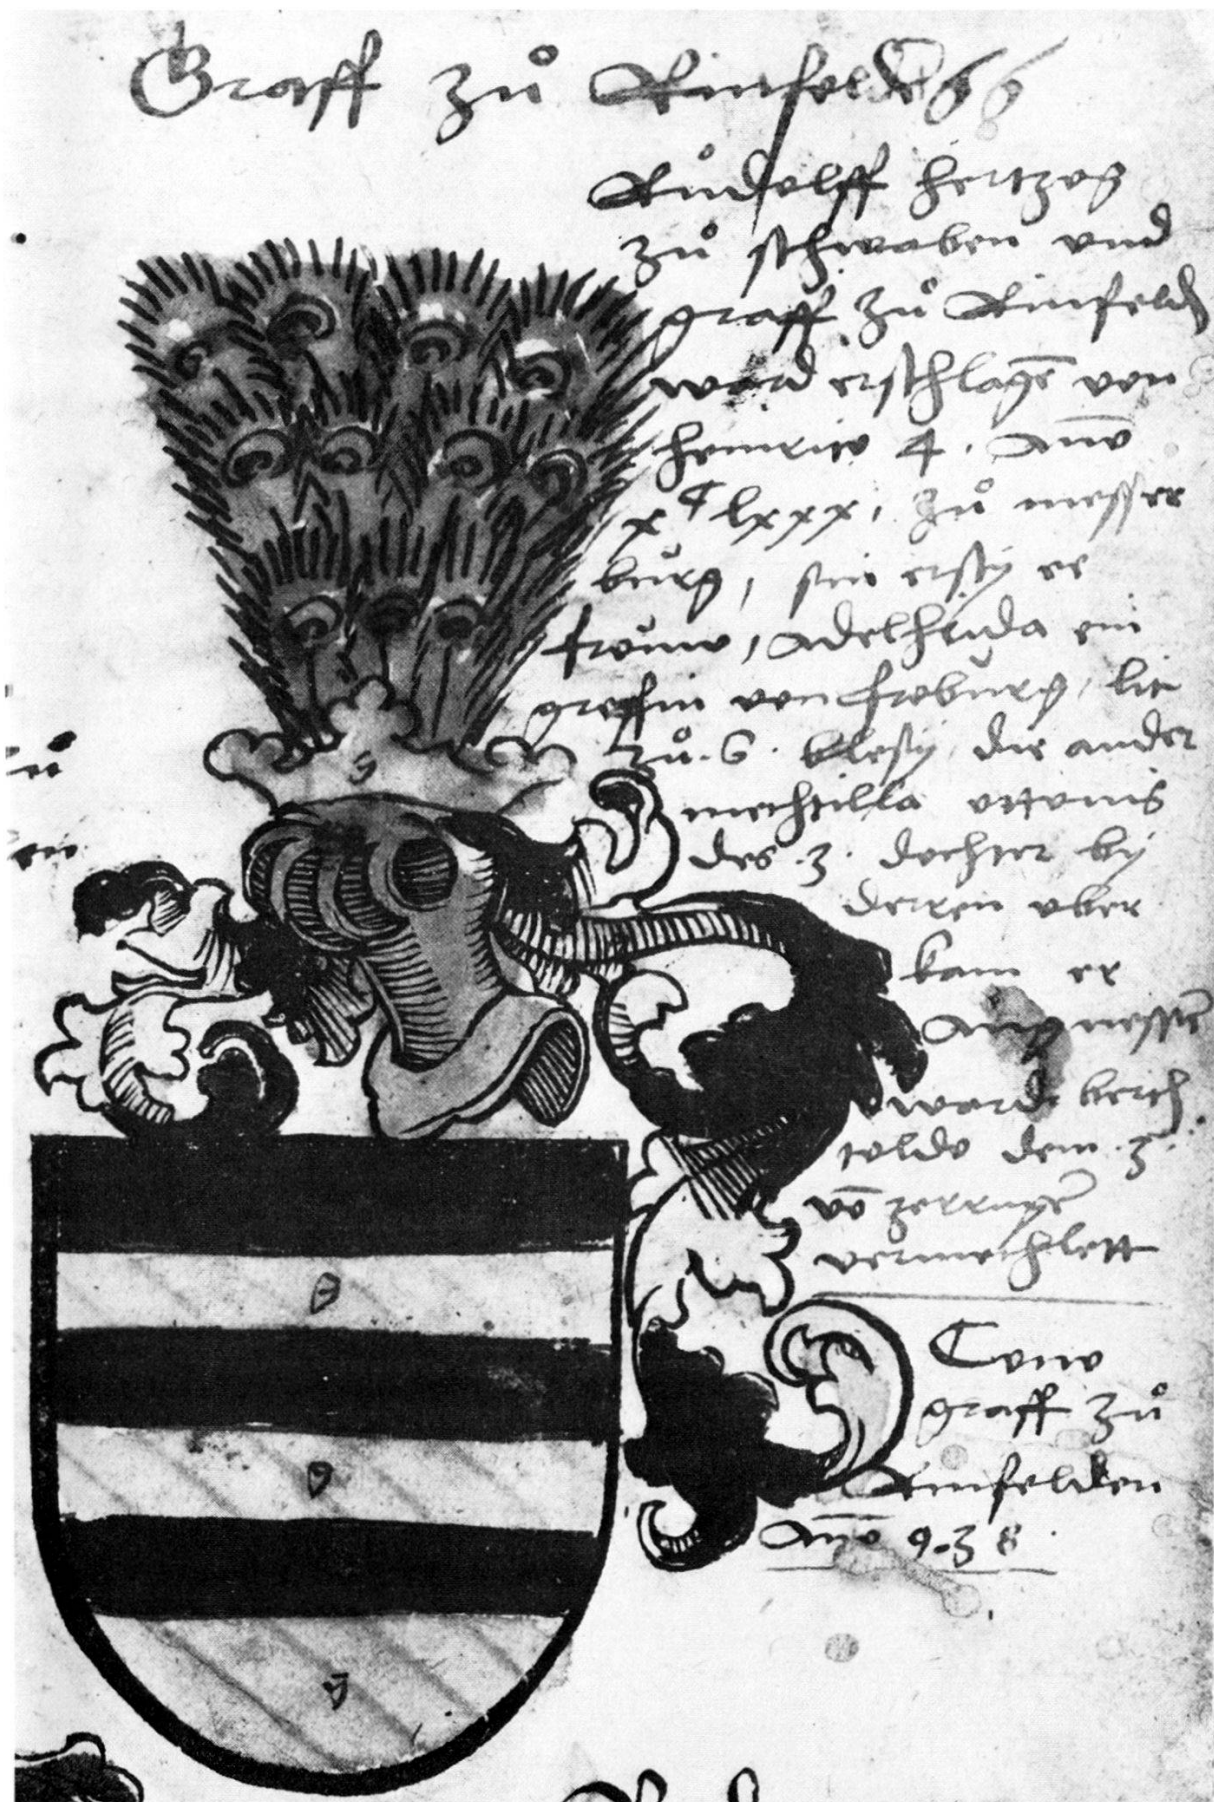 Graff zů Rinfelden
Růdolff hertzog
zů schwaben vnd
graff zů Rinfelden
ward erschlagē von
heinrico 4. Anō
xᶜ lxxx, zů messer
burg, sin ersty ee
frouw, Adelheida ein
greffin von froburg, lit
zů. S. blesy die ander
mechtilla ottonis
des .3. dochter by
deren vber
kam er
Angnessē
ward berch
toldo dem .3.
vō zerringē
vermechlett
Cono
graff zů
Rinfelden
Anō 938
g
g
g
g